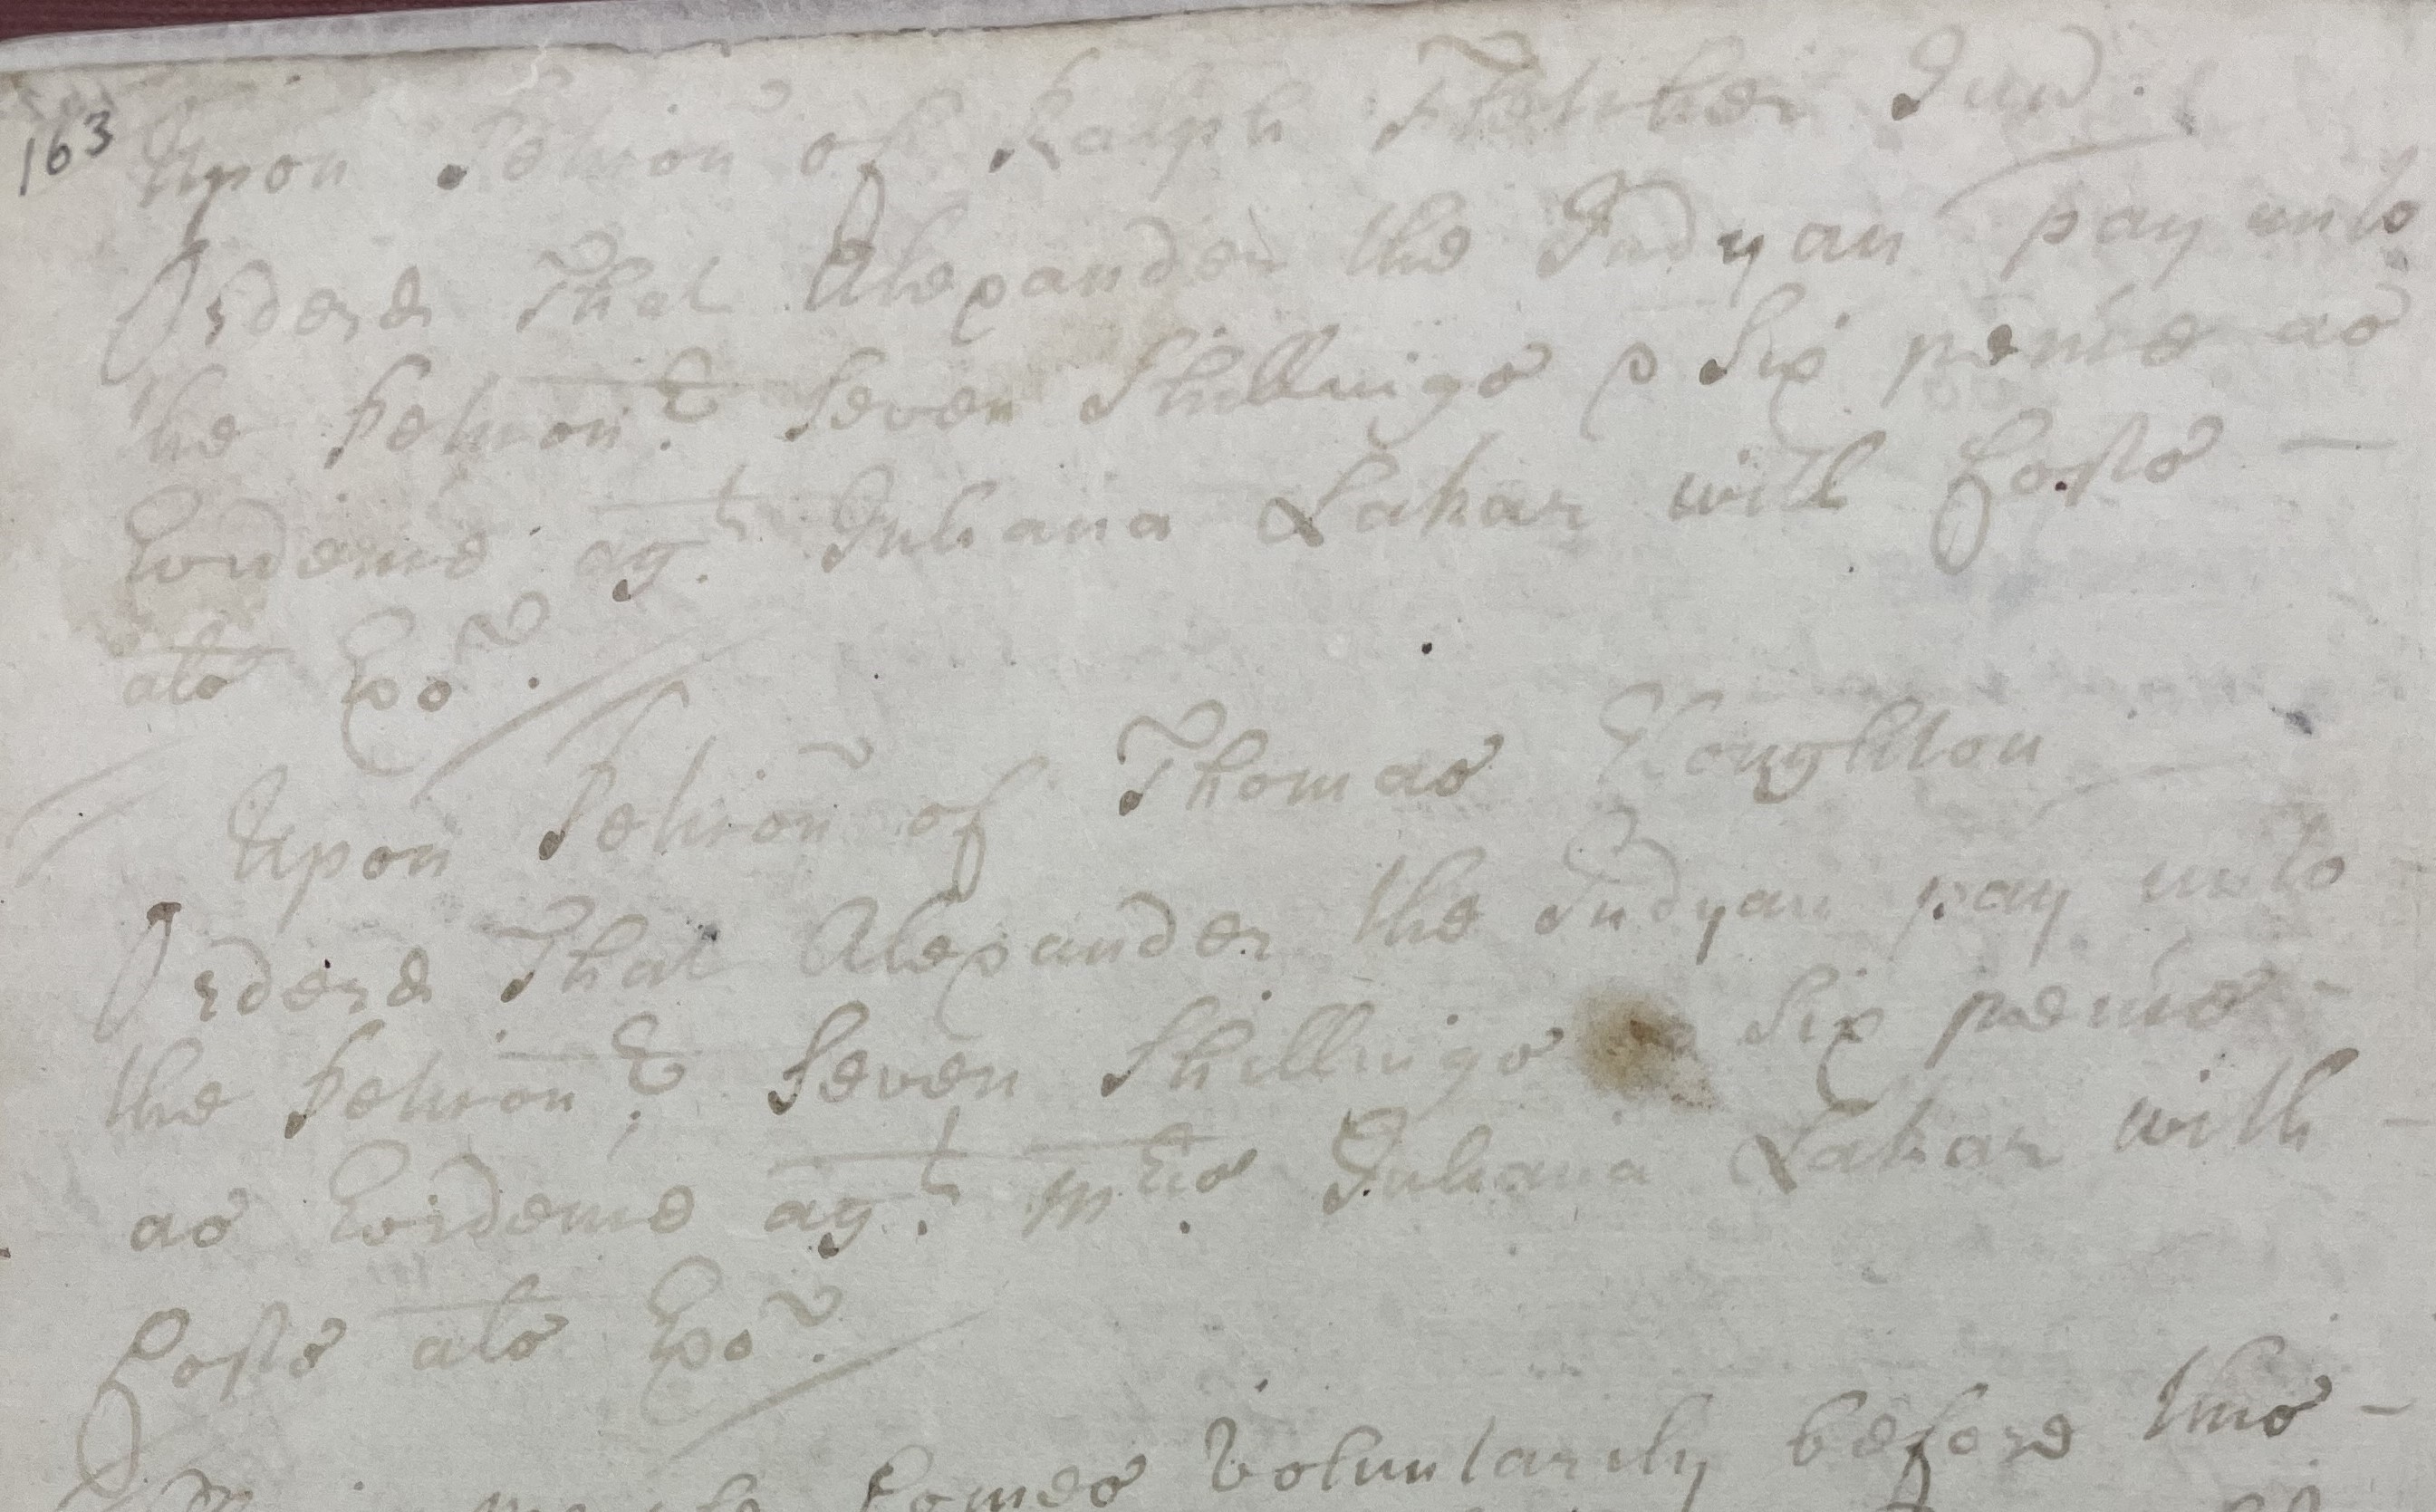 163 Upon Peticon of Ralph Fletcher Jun.r
Orderd That Alexander the Indyan pay unto
the Peticon.r Seven Shillings & Six pence as
Evidence ag.t Juliana Lakar with Costs —
als Exo.
Upon Peticon of Thomas Houghton
Orderd That Alexander the Indyan pay unto
the Peticon.r Seven Shillings Six pence -
as Evidence ag.t M.rs Juliana Lakar with -
Costs als Exo.
Comes Voluntarily before this -